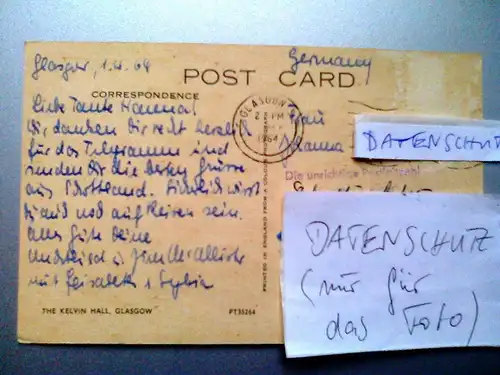 Glasgow, 1.4.64
Germany
POST CARD
CORRESPONDENCE
Liebe Tante Hanna!
Wir danken Dir recht herzlich
für das Telegramm und
senden Dir die besten Grüsse
aus Schottland. Hinterher wirst
Du auch noch auf Reisen sein.
Alles Gute Deine
mit Elisabeth + Sylvia
GLASGOW
2 PM
1964
Frau
Hanna
DATENSCHUTZ
Die unrichtige Postleitzahl
DATENSCHUTZ
(nur für
das Foto)
PRINTED IN ENGLAND FROM A COLOUR
THE KELVIN HALL, GLASGOW
PT35264